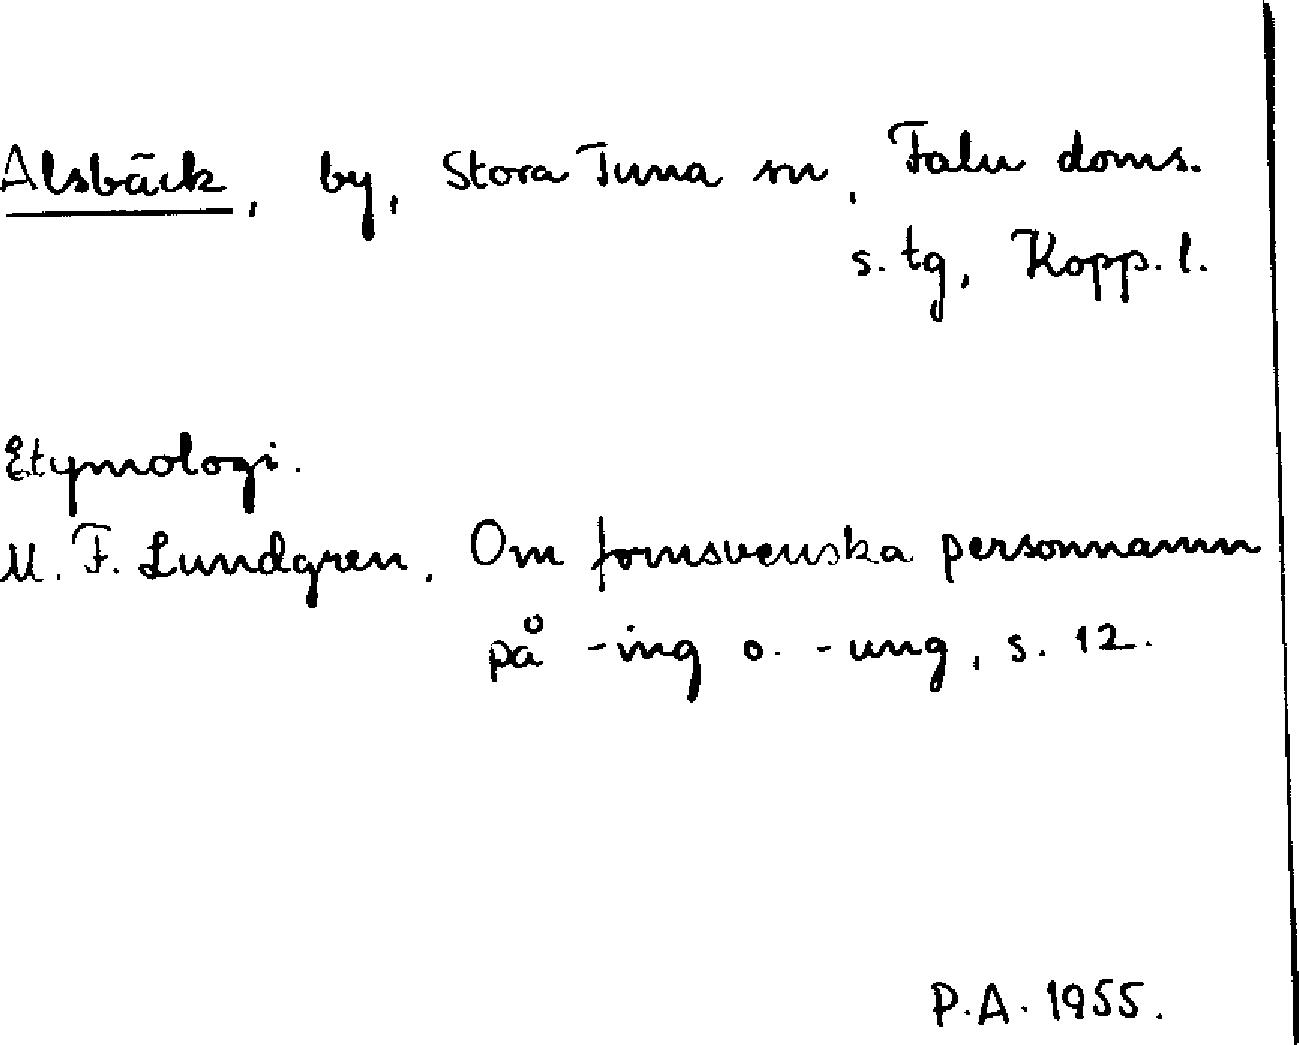 Alsbäck, by, Stora Tuna sn, Falu doms.
s. tg, Kopp. l.
Etymologi.
M. F. Lundgren, Om fornsvenska personnamn
på -ing o. -ung, s. 12.
P.A. 1955.